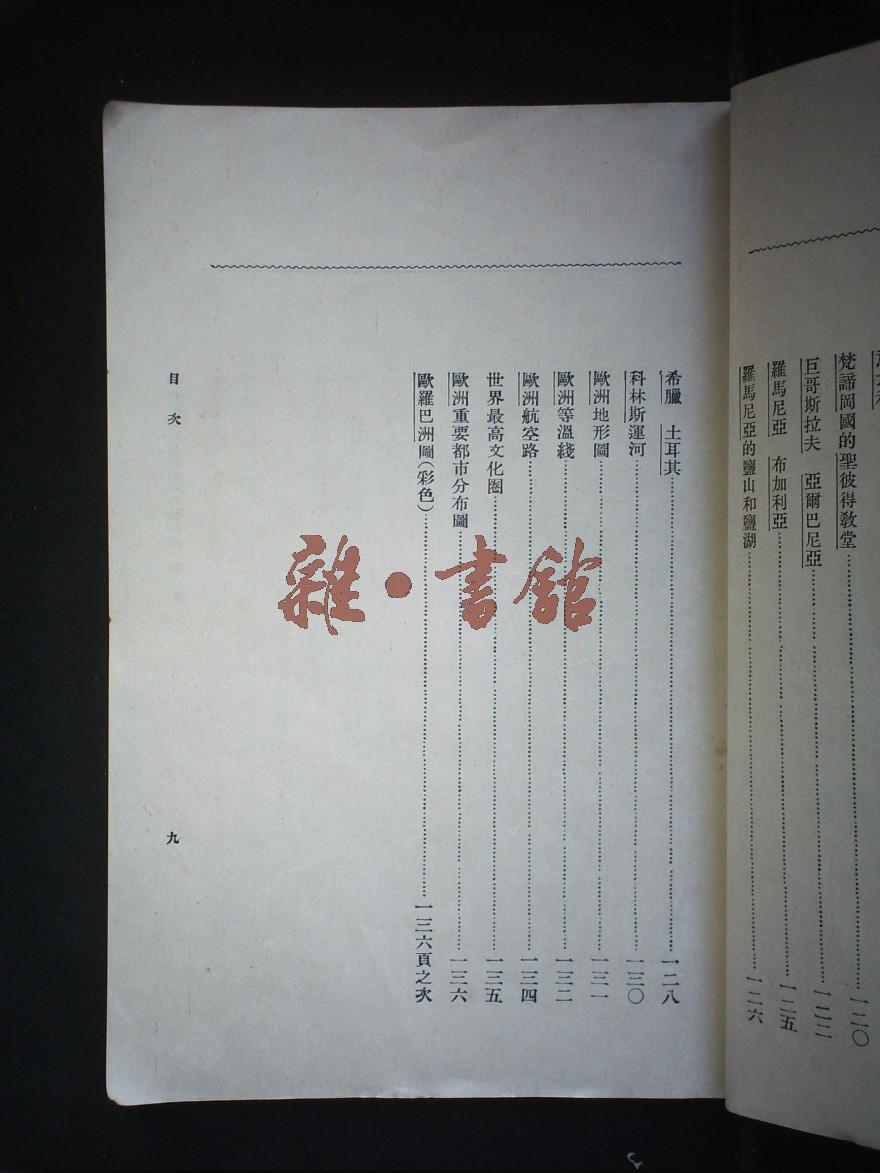 梵諦岡國的聖彼得敎堂……一二〇
巨哥斯拉夫　亞爾巴尼亞……一二二
羅馬尼亞　布加利亞……一二五
羅馬尼亞的鹽山和鹽湖……一二六
希臘　土耳其……一二八
科林斯運河……一三〇
歐洲地形圖……一三一
歐洲等溫綫……一三二
歐洲航空路……一三四
世界最高文化圈……一三五
歐洲重要都市分布圖……一三六
歐羅巴洲圖（彩色）……一三六頁之次
目次
九
雜·書館